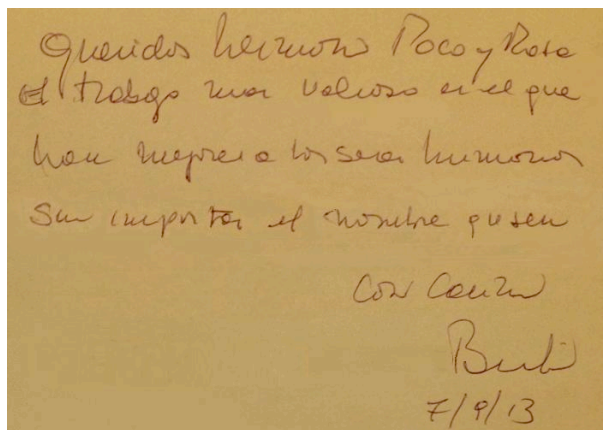 Queridos hermanos Paco y Rosa
El trabajo mas valioso es el que
hace mejores a los seres humanos
Sin importar el nombre
Con Cariño
7/9/13